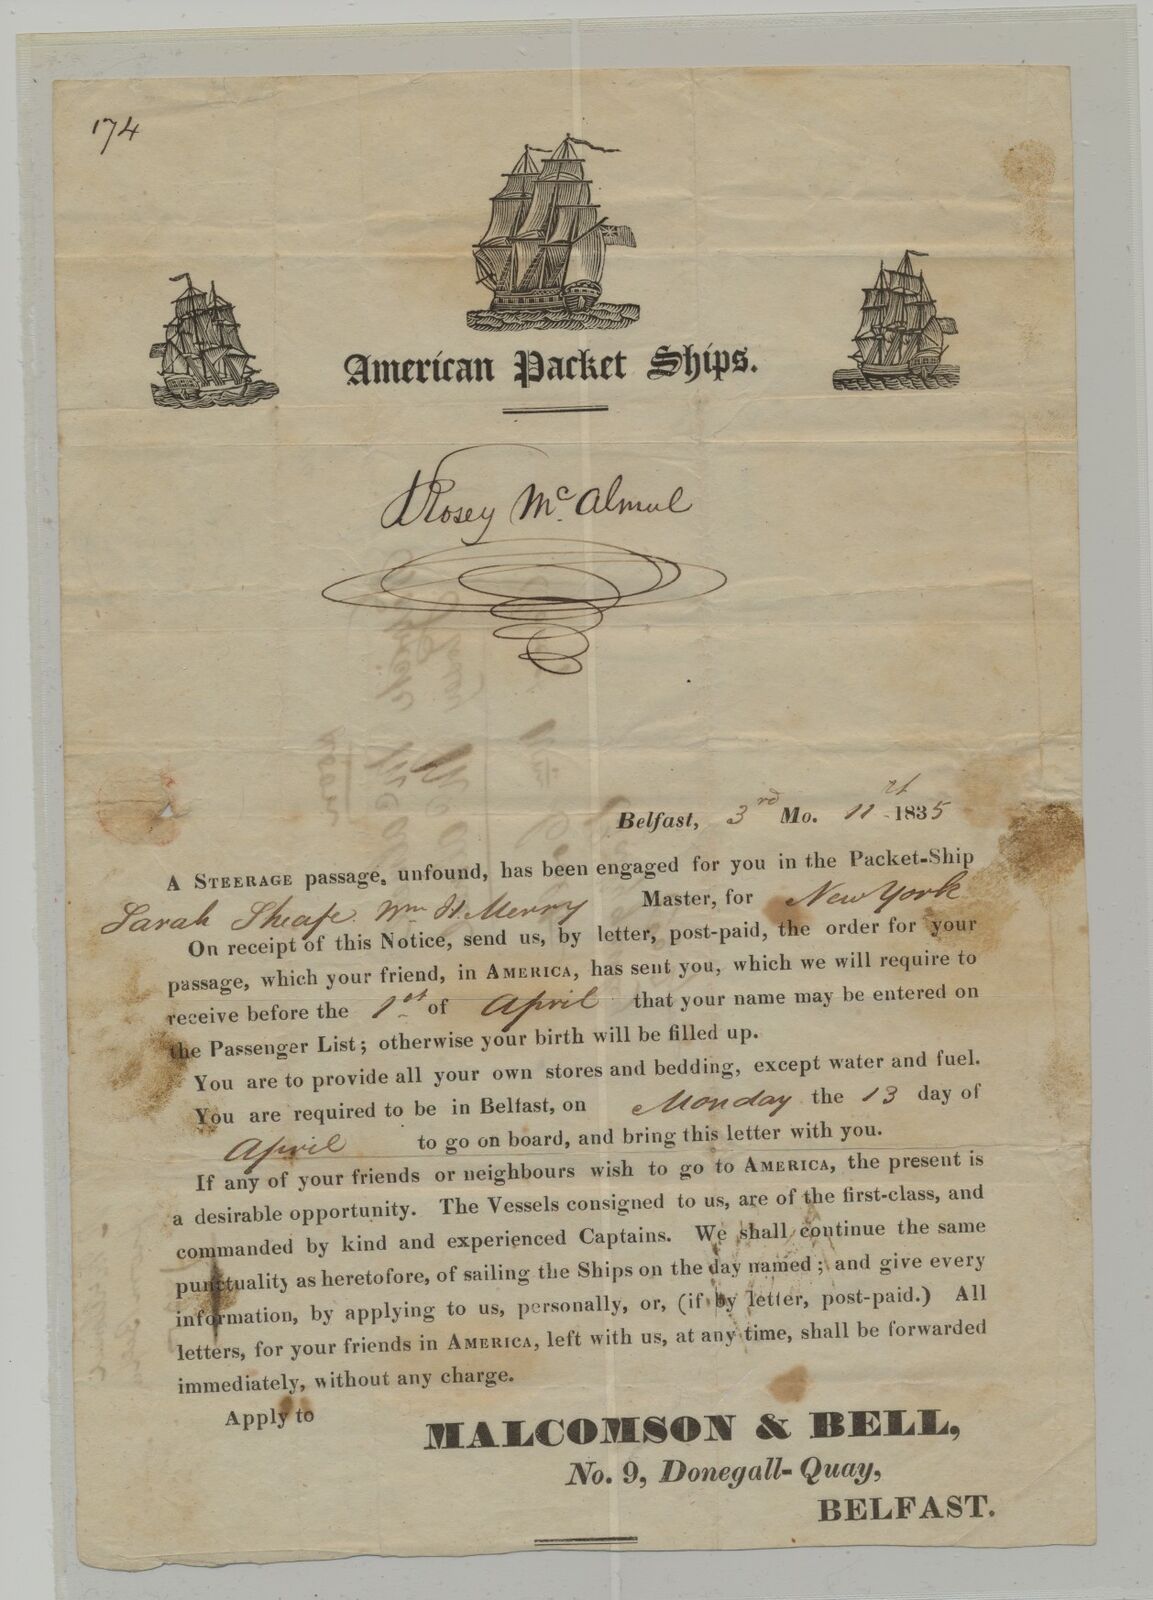 174
American Packet Ships.
Rosey Mc Almul
Belfast, 3rd Mo. 11 st 1835
A STEERAGE passage, unfound, has been engaged for you in the Packet-Ship
Sarah Sheafe Wm H. Merry Master, for New York
On receipt of this Notice, send us, by letter, post-paid, the order for your
passage, which your friend, in AMERICA, has sent you, which we will require to
receive before the 1st of April that your name may be entered on
the Passenger List; otherwise your birth will be filled up.
You are to provide all your own stores and bedding, except water and fuel.
You are required to be in Belfast, on Monday the 13 day of
April to go on board, and bring this letter with you.
If any of your friends or neighbours wish to go to AMERICA, the present is
a desirable opportunity. The Vessels consigned to us, are of the first-class, and
commanded by kind and experienced Captains. We shall continue the same
punctuality as heretofore, of sailing the Ships on the day named; and give every
information, by applying to us, personally, or, (if by letter, post-paid.) All
letters, for your friends in AMERICA, left with us, at any time, shall be forwarded
immediately, without any charge.
Apply to
MALCOMSON & BELL,
No. 9, Donegall-Quay,
BELFAST.